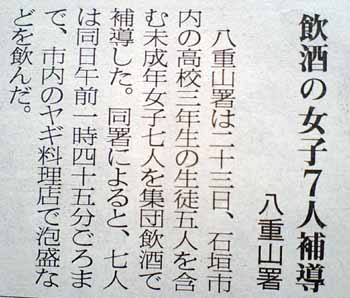 飲酒の女子7人補導
八重山署
八重山署は二十三日、石垣市
内の高校三年生の生徒五人を含
む未成年女子七人を集団飲酒で
補導した。同署によると、七人
は同日午前一時四十五分ごろま
で、市内のヤギ料理店で泡盛な
どを飲んだ。